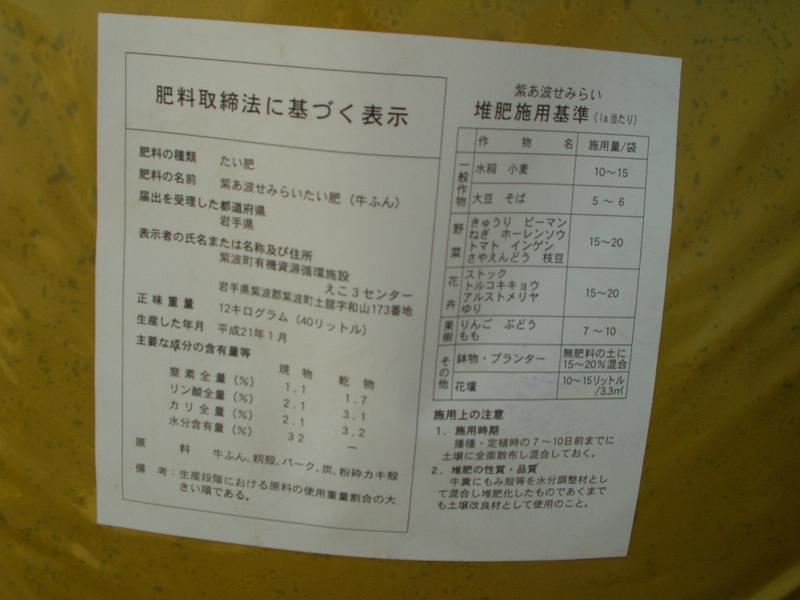 肥料取締法に基づく表示
肥料の種類 たい肥
肥料の名前 紫あ波せみらいたい肥（牛ふん）
届出を受理した都道府県
岩手県
表示者の氏名または名称及び住所
紫波町有機資源循環施設
えこ３センター
岩手県紫波郡紫波町土舘字和山173番地
正味重量 12キログラム（40リットル）
生産した年月 平成21年１月
主要な成分の含有量等
現物 乾物
窒素全量（%） 1.1 1.7
リン酸全量（%） 2.1 3.1
カリ全量（%） 2.1 3.2
水分含有量（%） 32 －
原料 牛ふん、籾殻、バーク、炭、粉砕カキ殻
備考：生産段階における原料の使用重量割合の大
きい順である。
紫あ波せみらい
堆肥施用基準（1a当たり）
作物名 施用量/袋
一般作物 水稲 小麦 10～15
大豆 そば 5～6
野菜 きゅうり ピーマン
ねぎ ホーレンソウ
トマト インゲン
さやえんどう 枝豆 15～20
花卉 ストック
トルコキキョウ
アルストメリヤ
ゆり 15～20
果樹 りんご ぶどう
もも 7～10
その他 鉢物・プランター 無肥料の土に
15～20%混合
花壇 10～15リットル
/3.3㎡
施用上の注意
１．施用時期
播種・定植時の７～10日前までに
土壌に全面散布し混合しておく。
２．堆肥の性質・品質
牛糞にもみ殻等を水分調整材とし
て混合し堆肥化したものであくまで
も土壌改良材として使用のこと。